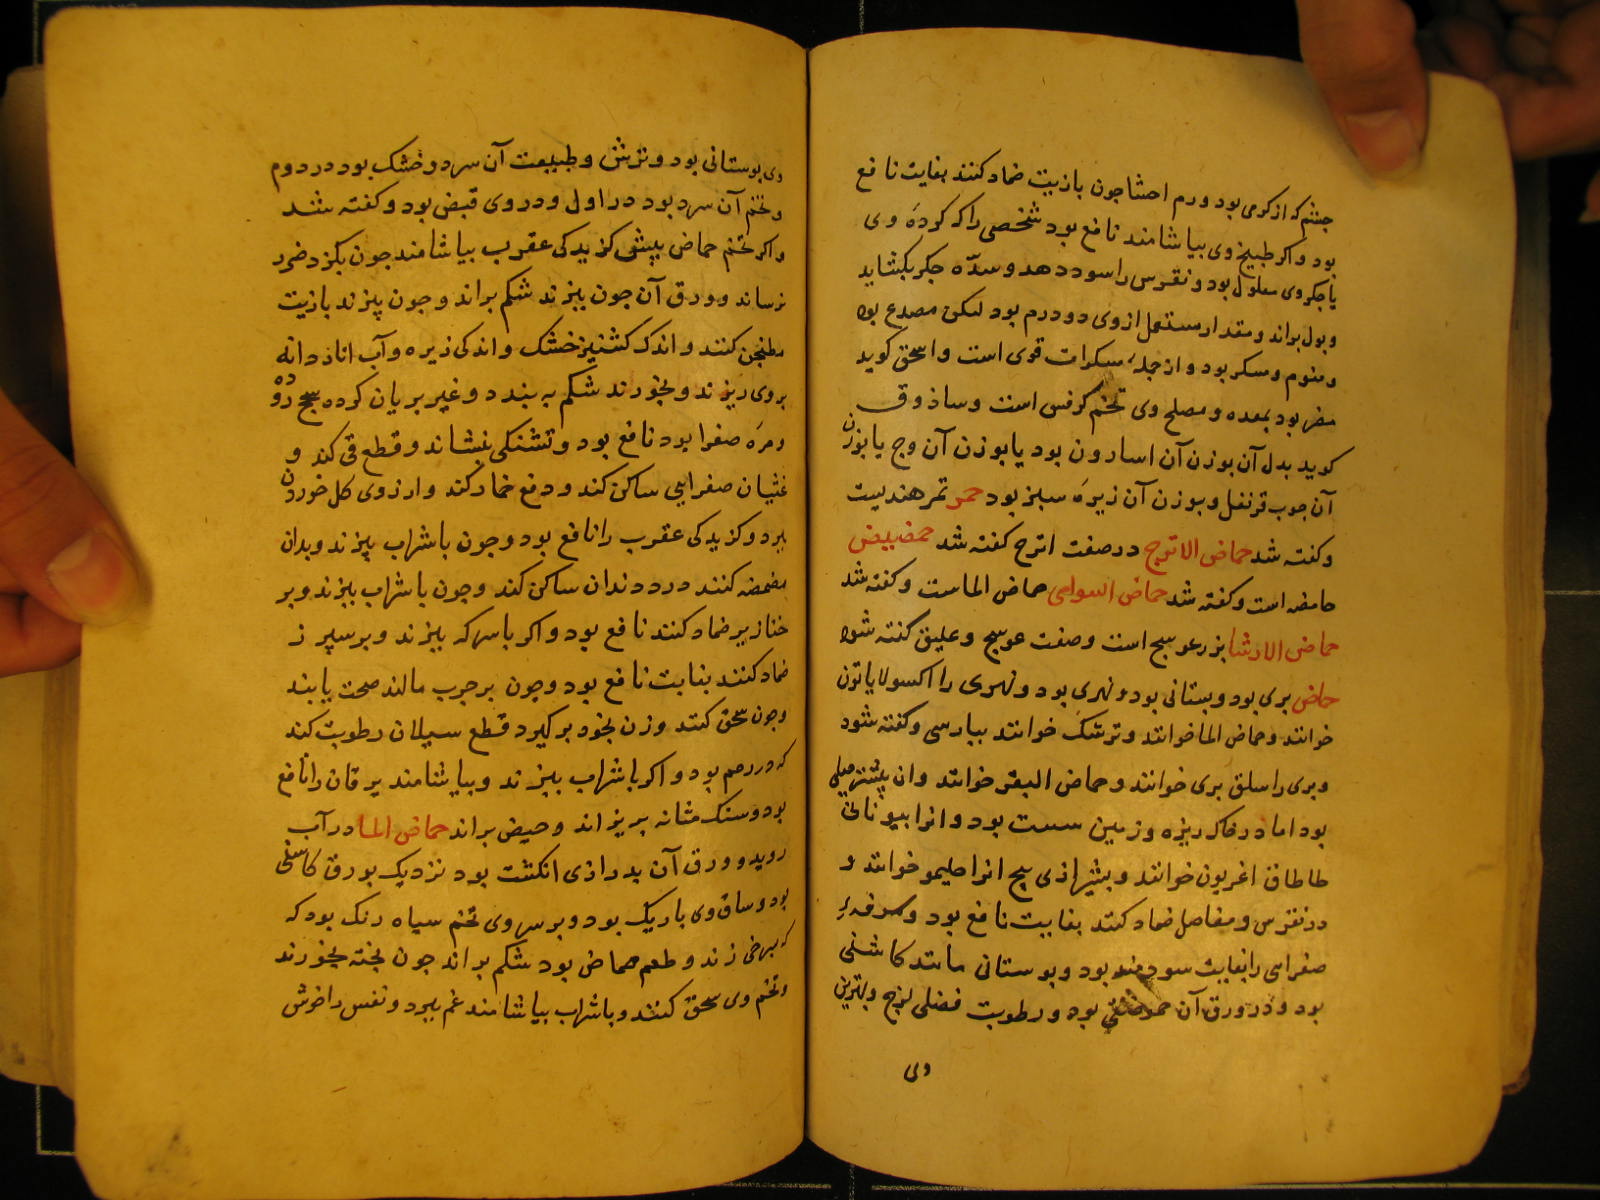 چشم که از کرمی بود و ورم احشا جون بازیت ضماد کنند بغایت نافع
بود و اکر طبیخ وی بیاشامند نافع بود شخصی را که کرده وی
یا جکر وی معلول بود و نقرس را سود دهد و سدّه جکر بکشاید
و بول براند و مقدار مستعمل از وی دو درم بود لیکن مصدع بود
و منوم و مسکر بود و از جمله مسکرات قوی است و اسحق کوید
مضر بود بمعده و مصلح وی تخم کرفس است وساذوق
کوید بدل آن بوزن آن اسارون بود یا بوزن آن وج یا بوزن
آن جوب قرنفل و بوزن آن زیره سبز بود حمر تمر هندیست
و کفته شد حماض الاترج در صفت اترج کفته شد حمضیض
حامضه است و کفته شد حماض السواقی حماض الماست و کفته شد
حماض الارنبا بزر عوسج است و صفت عوسج و علیق کفته شود
حماض بری بود و بستانی بود و نهری بود و نهری را اکسولاباتون
خوانند و حماض الما خوانند و ترشک خوانند بپارسی و کفته شود
و بری را سلق بری خوانند و حماض البقر خوانند وان بیشتر جبلی
بود اما در خاک ریزه و زمین سست بود و انرا بیونانی
طاطاق اغریون خوانند و بشیرازی بیج انرا حلیمو خوانند و
در نقرس و مفاصل ضماد کنند بغایت نافع بود و سرفه
صفرایی را بغایت سودمند بود و بوستانی مانند کاشنی
بود و در ورق آن حموضتی بود و رطوبت فضلی لزج و بهترین
وی
وی بوستانی بود و ترش و طبیعت آن سرد و خشک بود در دوم
و تخم آن سرد بود در اول و در وی قبض بود و کفته شد
واکر تخم حماض پیش کزیدکی عقرب بیاشامند جون بکزد ضرر
نرساند و ورق آن جون بپزند شکم براند و جون بپزند بازیت
مطنجن کنند و اندک کشنیز خشک و اندکی زیره وآب انار دانه
بروی ریزند و بخورند شکم به بندد و غیر بریان کرده سحج روده
و مره صفرا بود نافع بود و تشنکی بنشاند و قطع قی کند و
غثیان صفرایی ساکن کند و دفع خمار کند و ارزوی کل خوردن
ببرد و کزیدکی عقرب را نافع بود و جون با شراب بپزند و بدان
مضمضه کنند درد دندان ساکن کند و جون با شراب بپزند و بر
خنازیر ضماد کنند نافع بود و اکر با سرکه بپزند و بر سپرز
ضماد کنند بغایت نافع بود و جون بر جرب مالند صحت یابند
وجون سحق کنند و زن بخود بر کیرد قطع سیلان رطوبت کند
که در رحم بود و اکر با شراب بپزند و بیاشامند یرقان را نافع
بود و سنک مثانه بریزاند و حیض براند حماض الما در آب
روید و ورق آن بدرازی انکشت بود نزدیک بورق کاسنی
بود و ساق وی باریک بود و بر سر وی تخم سیاه رنک بود که
که بسرخی زند و طعم حماض بود شکم براند جون پخته بخورند
و تخم وی سحق کنند و با شراب بیاشامند غم ببرد و نفس را خوش